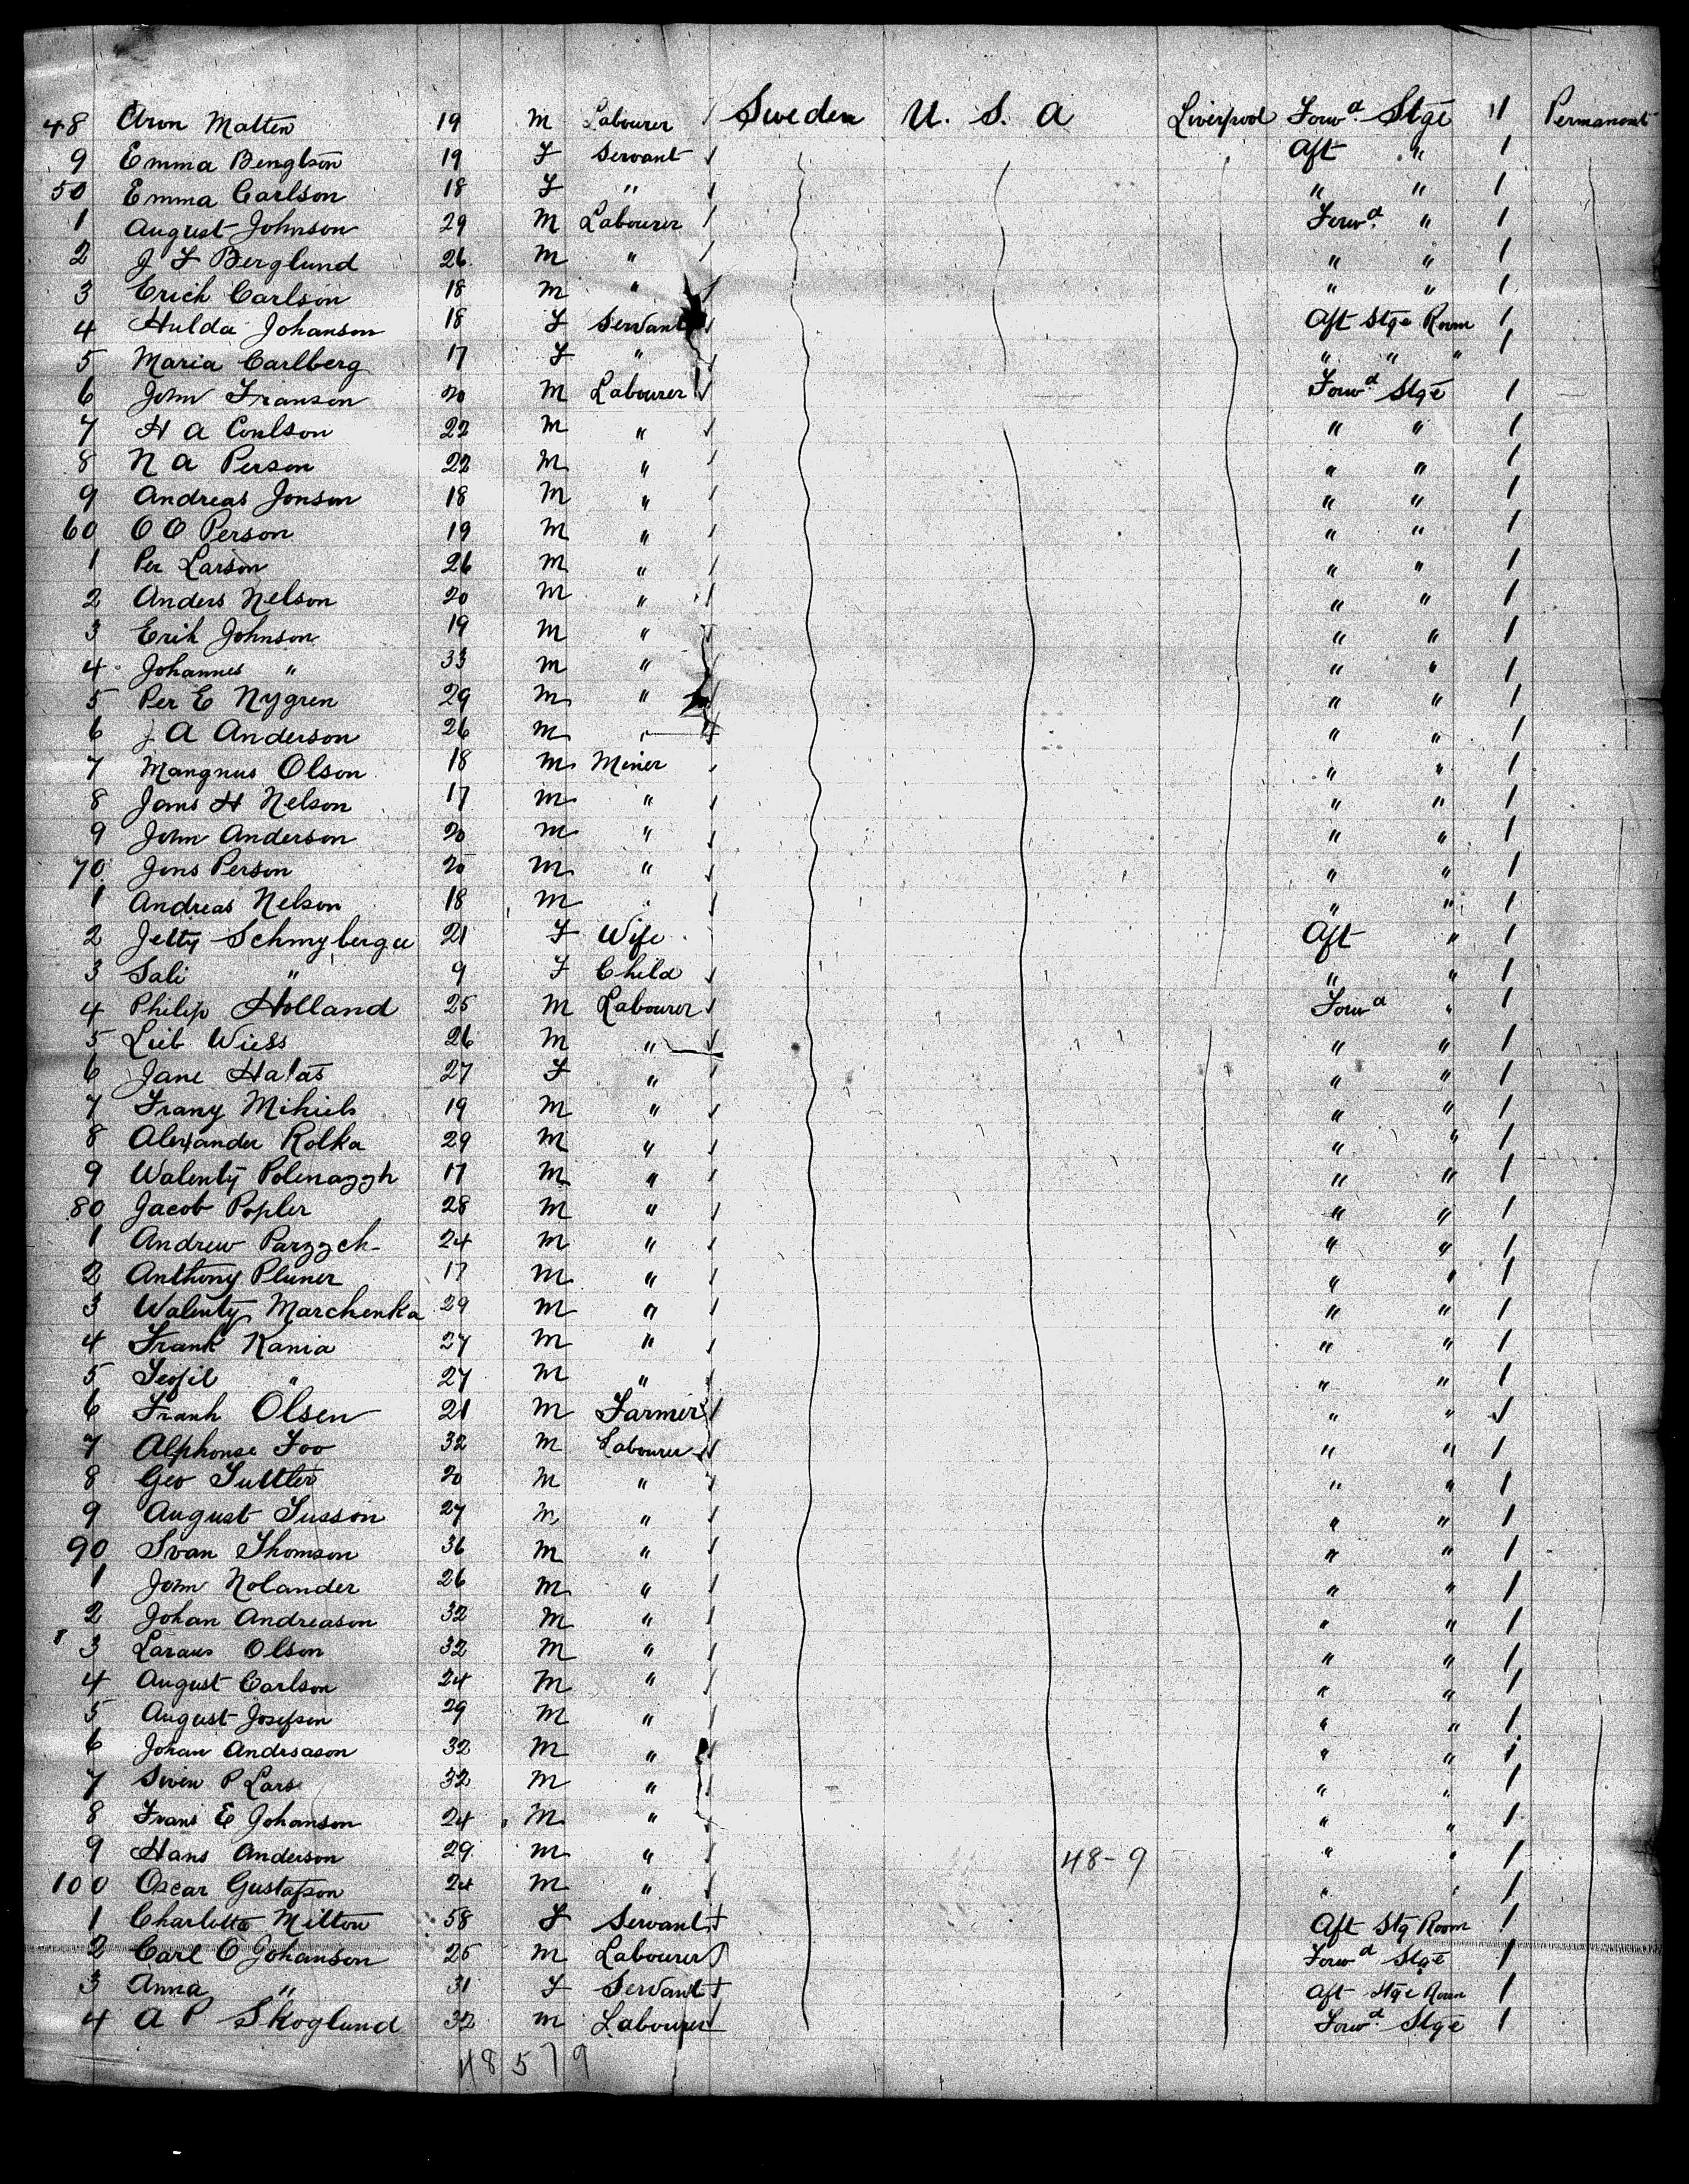 48 Aron Matten 19 M Labourer / Sweden U. S. A Liverpool Forwd Stge 11 Permanent
9 Emma Bengtson 19 F Servant / Aft " 1
50 Emma Carlson 18 F " / " " 1
1 August Johnson 29 M Labourer / Forwd " 1
2 J F Berglund 26 M " / " " 1
3 Erick Carlson 18 M " / " " 1
4 Hulda Johanson 18 F Servant / Aft Stge Room 1
5 Maria Carlberg 17 F " / " " " 1
6 John Franson 20 M Labourer / Forwd Stge 1
7 H A Coulson 22 M " / " " 1
8 N A Person 22 M " / " " 1
9 Andreas Jonson 18 M " / " " 1
60 O O Person 19 M " / " " 1
1 Per Larson 26 M " / " " 1
2 Anders Nelson 20 M " / " " 1
3 Erik Johnson 19 M " / " " 1
4 Johannes " 33 M " / " " 1
5 Per E Nygren 29 M " / " " 1
6 J A Anderson 26 M " / " " 1
7 Mangnus Olson 18 M Miner / " " 1
8 Jons H Nelson 17 M " / " " 1
9 John Anderson 20 M " / " " 1
70 Jons Person 20 M " / " " 1
1 Andreas Nelson 18 M " / " " 1
2 Jetty 21 F Wife Aft " 1
3 Sali " 9 F Child / " " 1
4 Philip Holland 25 M Labourer / Forwd " 1
5 Leib Wiess 26 M " / " " 1
6 Jane Halas 27 F " / " " 1
7 Frany Mihiels 19 M " / " " 1
8 Alexander Rolka 29 M " / " " 1
9 Walenty Polenazzh 17 M " / " " 1
80 Jacob Popler 28 M " / " " 1
1 Andrew Parzzch 24 M " / " " 1
2 Anthony Pluner 17 M " / " " 1
3 Walenty Marchenka 29 M " / " " 1
4 Frank Kania 27 M " / " " 1
5 Teofil " 27 M " / " " 1
6 Frank Olsen 21 M Farmer / " " 1
7 Alphonse Foo 32 M Labourer / " " 1
8 Geo Tuttler 20 M " / " " 1
9 August Tusson 27 M " / " " 1
90 Svan Thomson 36 M " / " " 1
1 John Nolander 26 M " / " " 1
2 Johan Andreason 32 M " / " " 1
3 Laraus Olson 32 M " / " " 1
4 August Carlson 24 M " / " " 1
5 August Josefson 29 M " / " " 1
6 Johan Andreason 32 M " / " " 1
7 Swen P Lars 32 M " / " " 1
8 Frans E Johanson 24 M " / " " 1
9 Hans Anderson 29 M " / 48-9 " " 1
100 Oscar Gustafson 24 M " / " " 1
1 Charlotte Milton 58 F Servant + Aft Stg Room 1
2 Carl O Johanson 25 M Labourer / Forwd Stge 1
3 Anna " 31 F Servant + Aft Stge Room 1
4 A P Skoglund 32 M Labourer Forwd Stge 1
48579